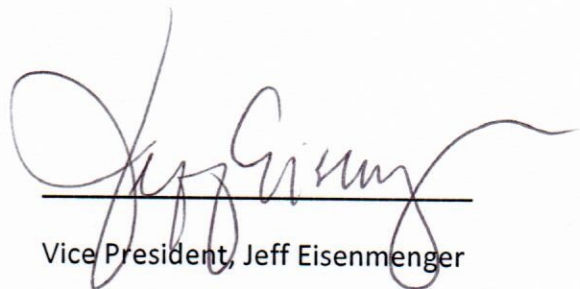 Jeff Eisenmenger
Vice President, Jeff Eisenmenger